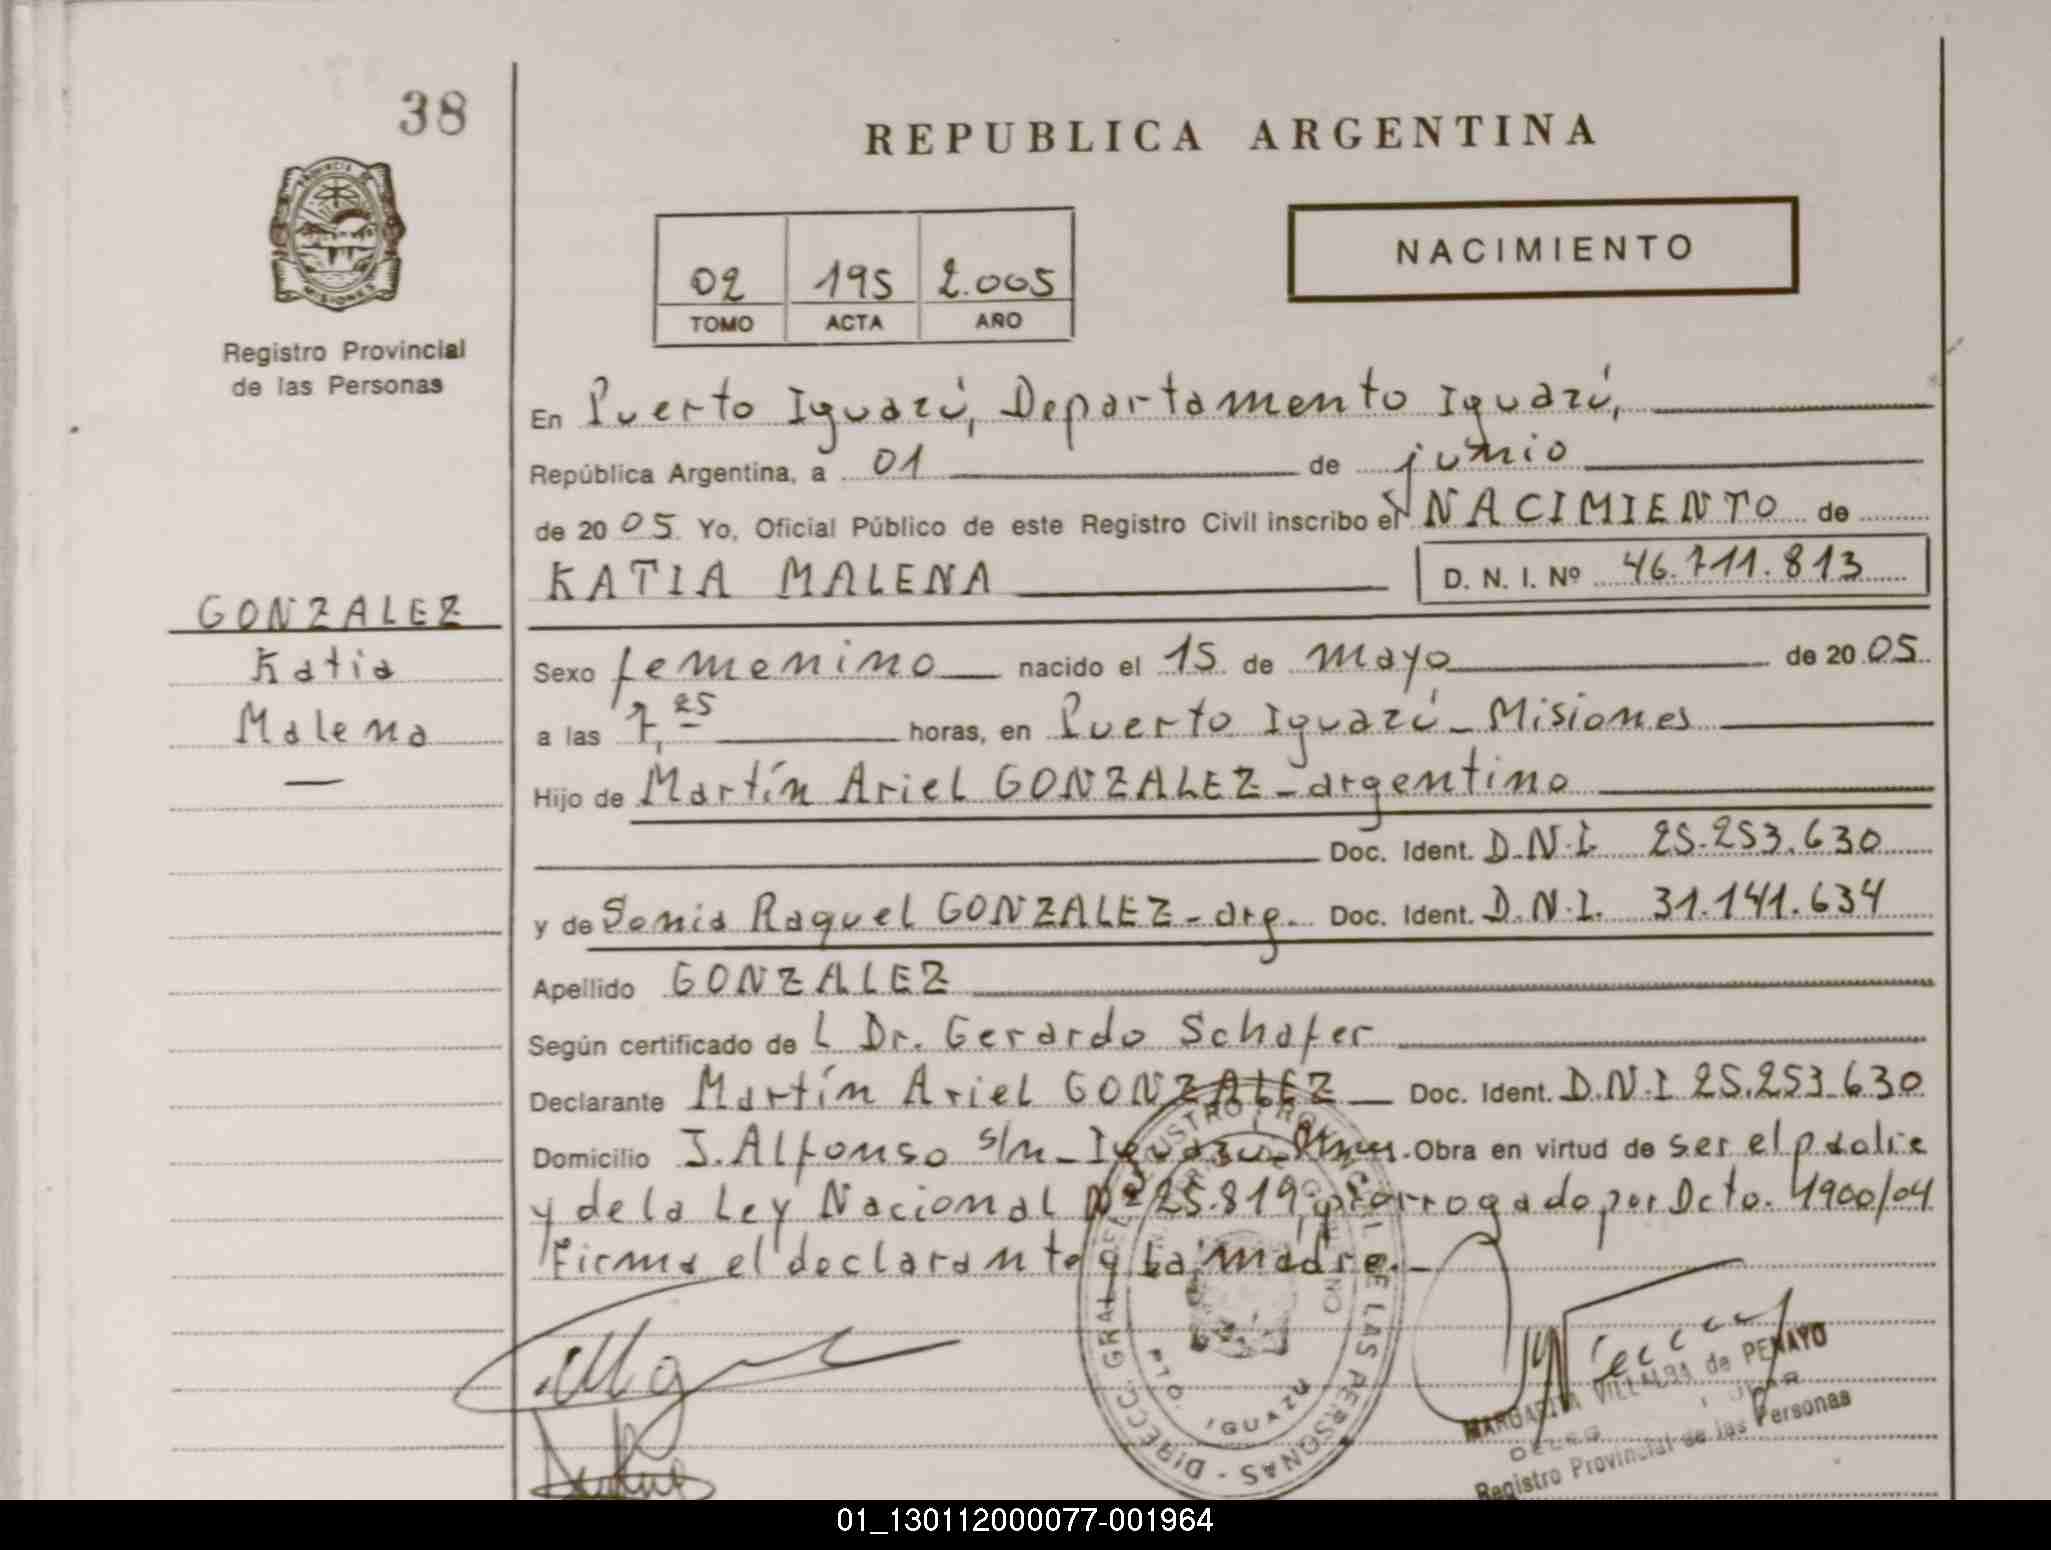 38
REPUBLICA ARGENTINA
PROVINCIA DE
MISIONES
NACIMIENTO
02 195 2.005
TOMO ACTA AÑO
Registro Provincial
de las Personas
En Puerto Iguazú, Departamento Iguazú,
República Argentina, a 01 de junio
de 20 05 Yo, Oficial Público de este Registro Civil inscribo el NACIMIENTO de
KATIA MALENA D. N. I. Nº 46.711.813
GONZALEZ
Katia
Malena
Sexo femenino nacido el 15 de mayo de 20 05
a las 7,25 horas, en Puerto Iguazú - Misiones
Hijo de Martín Ariel GONZALEZ - argentino
Doc. Ident. D.N.I. 25.253.630
y de Sonia Raquel GONZALEZ - arg. Doc. Ident. D.N.I. 31.141.634
Apellido GONZALEZ
Según certificado de L Dr. Gerardo Schafer
Declarante Martín Ariel GONZALEZ Doc. Ident. D.N.I 25.253.630
Domicilio J. Alfonso s/n - Iguazú - Mnes. Obra en virtud de ser el padre
y de la Ley Nacional Nº 25.819, prorrogado por Dcto. 1900/04
Firma el declarante y la madre. -
DIRECC. GRAL. DE LAS PERSONAS
PTO. IGUAZU
MARGARITA VILLALBA de PENAYO
Registro Provincial de las Personas
01_130112000077-001964